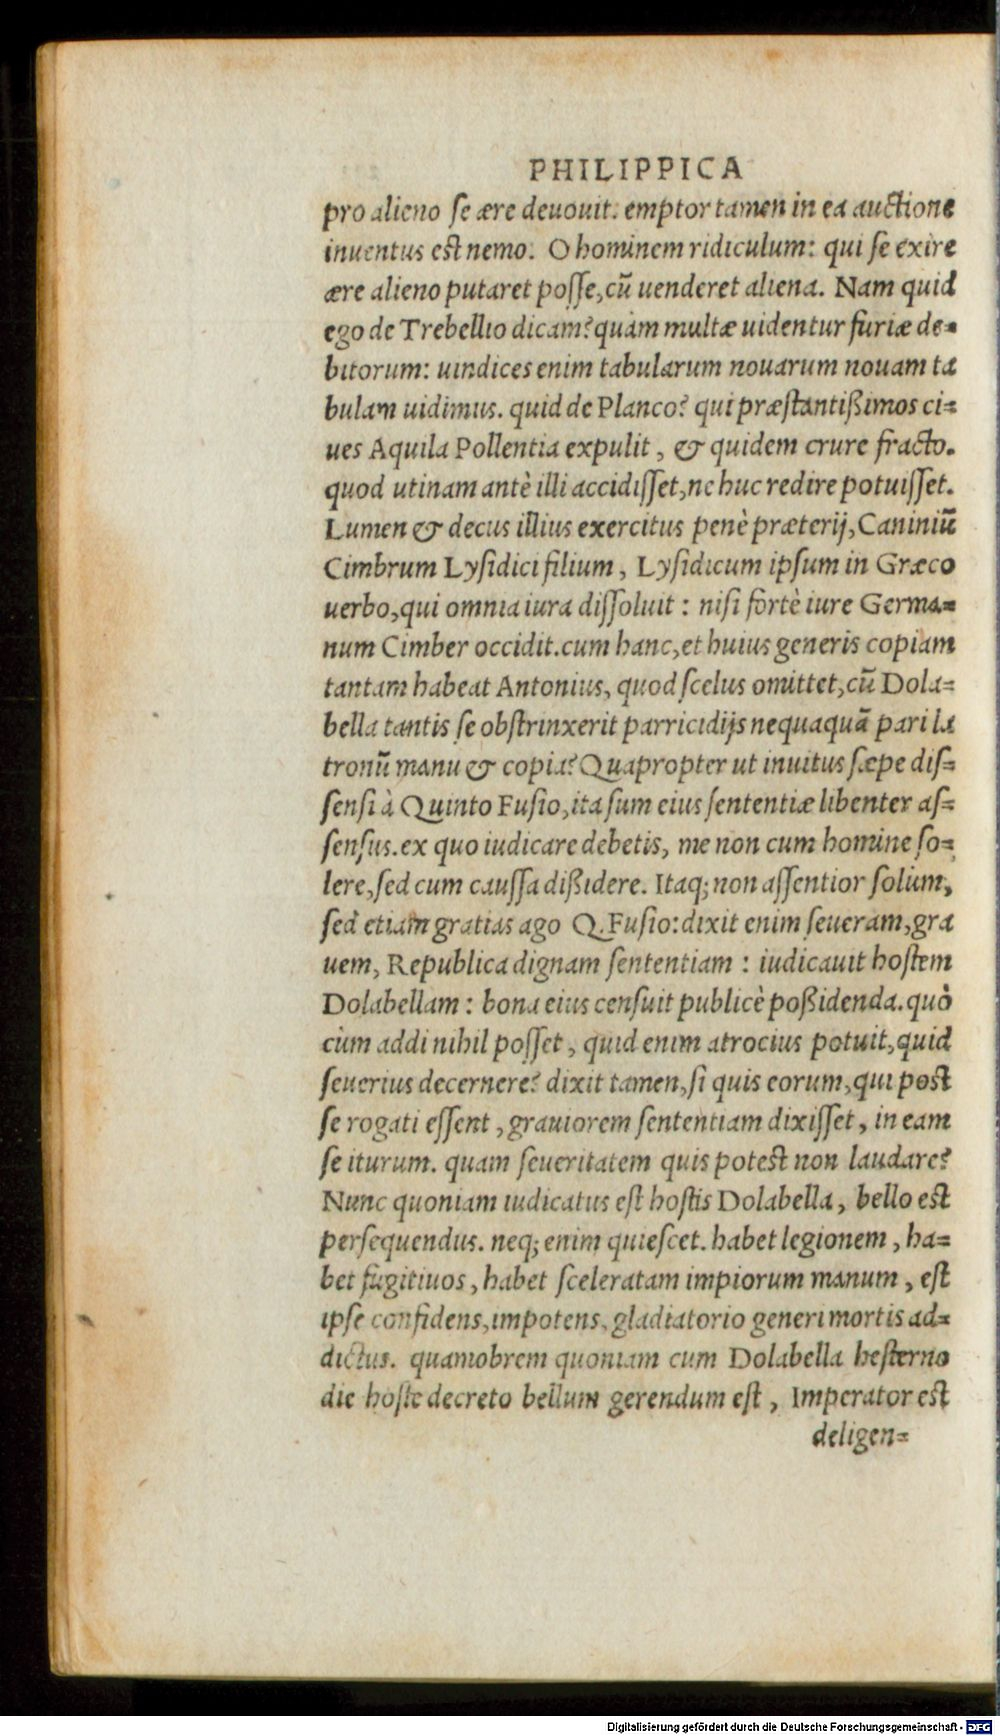 PHILIPPICA
pro alieno se ære deuouit: emptor tamen in ea auctione
inuentus est nemo. O hominem ridiculum: qui se exire
ære alieno putaret posse, cū uenderet aliena. Nam quid
ego de Trebellio dicam? quàm multæ uidentur furiæ de=
bitorum: uindices enim tabularum nouarum nouam ta
bulam uidimus. quid de Planco? qui præstantißimos ci=
ues Aquila Pollentia expulit, & quidem crure fracto.
quod utinam antè illi accidisset, ne huc redire potuisset.
Lumen & decus illius exercitus penè præterij, Caniniū
Cimbrum Lysidici filium, Lysidicum ipsum in Græco
uerbo, qui omnia iura dissoluit: nisi fortè iure Germa=
num Cimber occidit. cum hanc, et huius generis copiam
tantam habeat Antonius, quod scelus omittet, cū Dola=
bella tantis se obstrinxerit parricidijs nequaquā pari la
tronū manu & copia? Quapropter ut inuitus sæpe dis=
sensi à Quinto Fusio, ita sum eius sententiæ libenter as=
sensus. ex quo iudicare debetis, me non cum homine so=
lere, sed cum caussa dißidere. Itaq; non assentior solùm,
sed etiam gratias ago Q. Fusio: dixit enim seueram, gra
uem, Republica dignam sententiam: iudicauit hostem
Dolabellam: bona eius censuit publicè poßidenda. quò
cùm addi nihil posset, quid enim atrocius potuit, quid
seuerius decernere? dixit tamen, si quis eorum, qui post
se rogati essent, grauiorem sententiam dixisset, in eam
se iturum. quam seueritatem quis potest non laudare?
Nunc quoniam iudicatus est hostis Dolabella, bello est
persequendus. neq; enim quiescet. habet legionem, ha=
bet fugitiuos, habet sceleratam impiorum manum, est
ipse confidens, impotens, gladiatorio generi mortis ad=
dictus. quamobrem quoniam cum Dolabella hesterno
die hoste decreto bellum gerendum est, Imperator est
deligen=
Digitalisierung gefördert durch die Deutsche Forschungsgemeinschaft - DFG